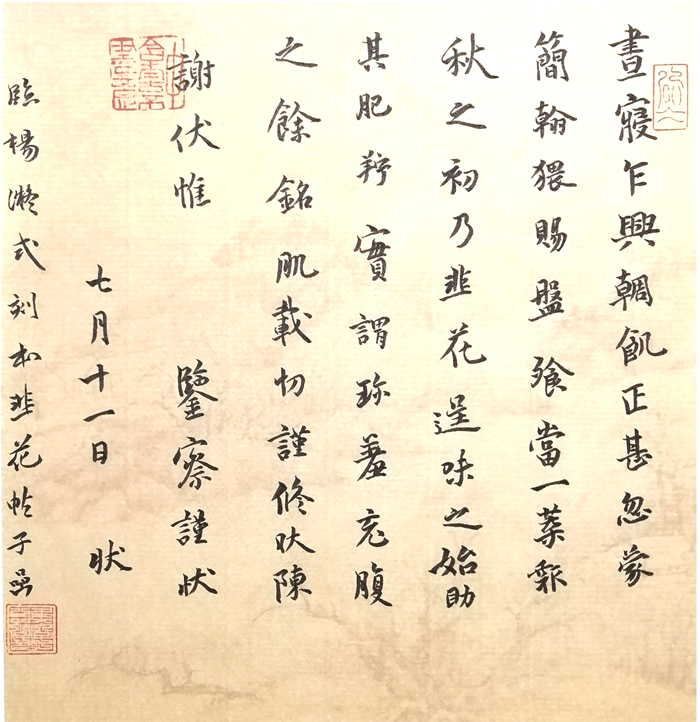 晝寢乍興輖飢正甚忽蒙
簡翰猥賜盤飧當一葉報
秋之初乃韭花逞味之始助
其肥羜實謂珍羞充腹
之餘銘肌載切謹修狀陳
謝伏惟 鑒察謹狀
七月十一日 狀
臨楊凝式刻本韭花帖子